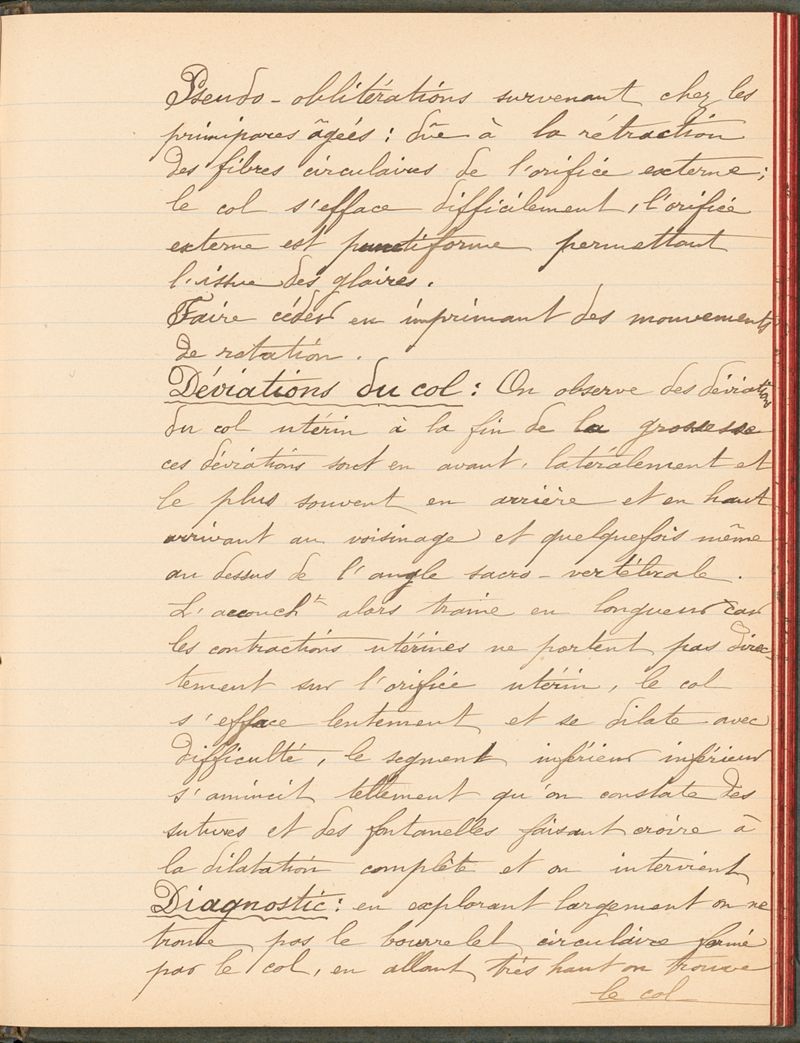 Pseudo-oblitérations survenant chez les
primipares âgées : dûe à la rétraction
des fibres circulaires de l'orifice externe ;
le col s'efface difficilement, l'orifice
externe est punctiforme permettant
l'issue des glaires.
Faire céder en imprimant des mouvements
de rotation.
Déviations du col : On observe des déviations
du col utérin à la fin de la grossesse
ces déviations sont en avant, latéralement et
le plus souvent en arrière et en haut
arrivant au voisinage et quelquefois même
au dessus de l'angle sacro-vertébrale.
L'accouch^t alors traine en longueur car
les contractions utérines ne portent pas direc-
tement sur l'orifice utérin, le col
s'efface lentement et se dilate avec
difficulté, le segment inférieur inférieur
s'amincit tellement qu'on constate des
sutures et des fontanelles faisant croire à
la dilatation complète et on intervient
Diagnostic : en explorant largement on ne
trouve pas le bourrelet circulaire formé
par le col, en allant très haut on trouve
le col